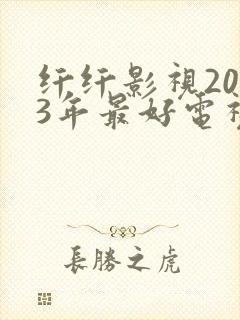 纤纤影視20
3年最好電視
長勝之虎